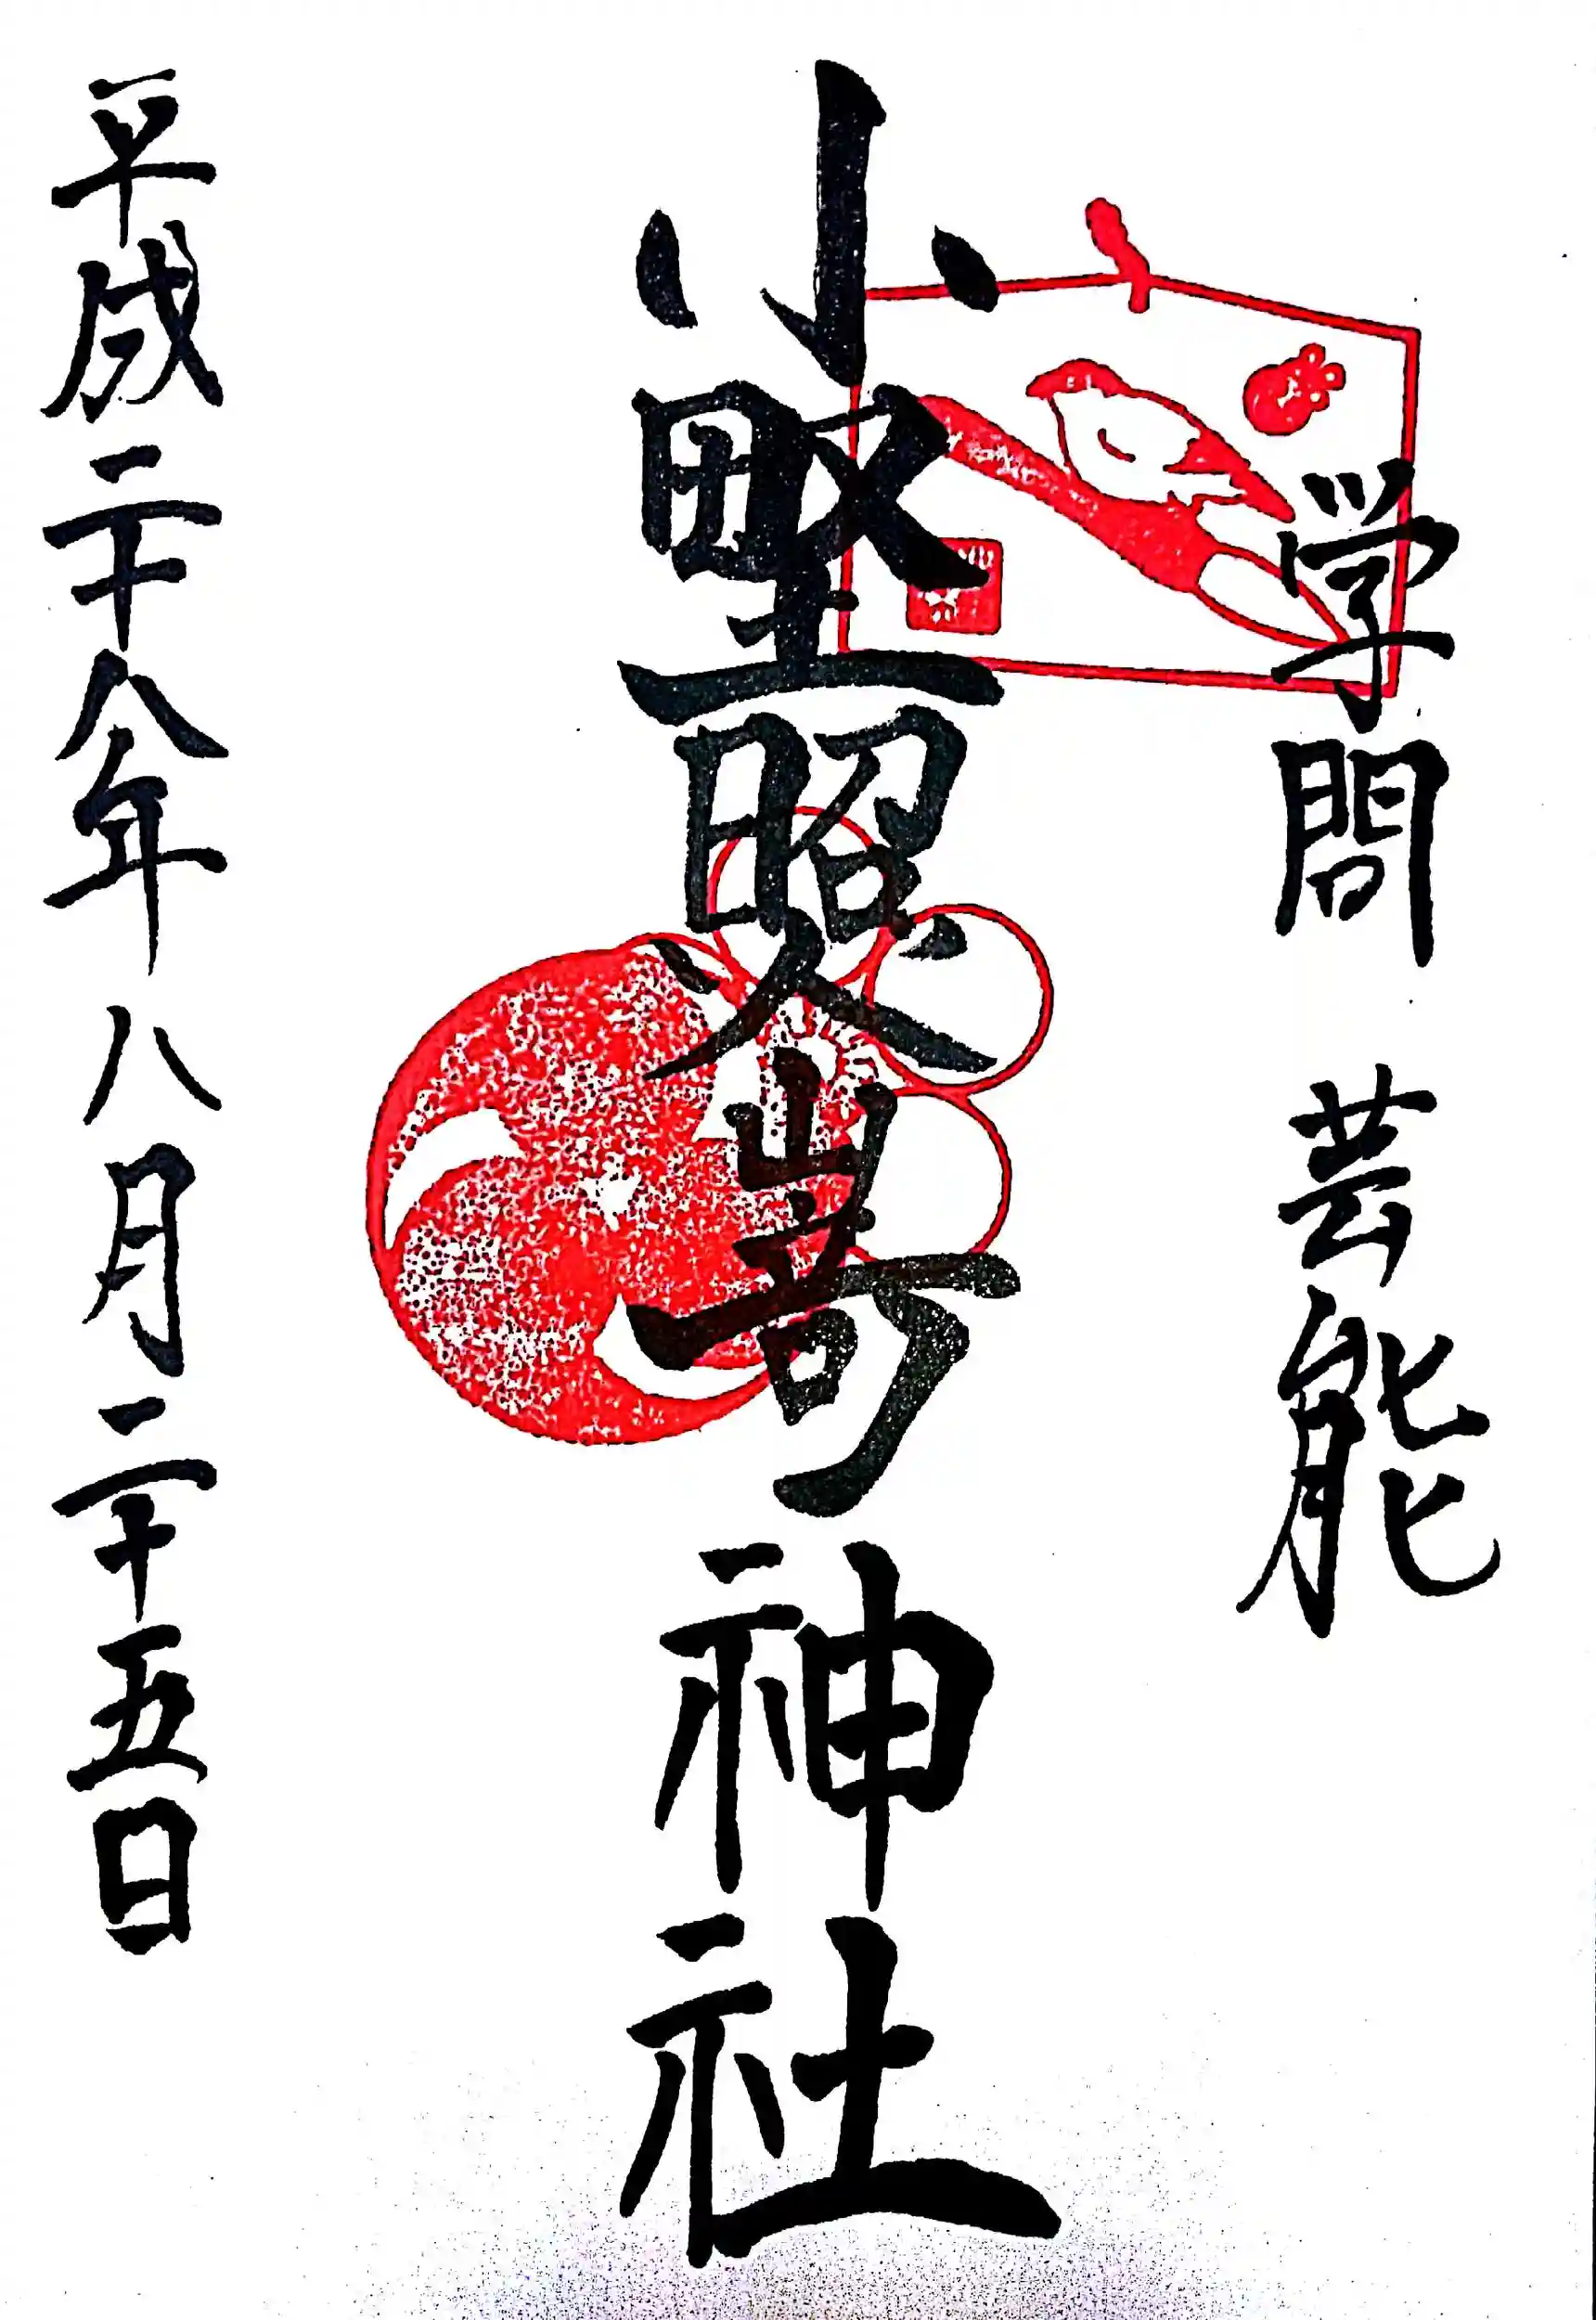 学問 芸能
小野照嵜神社
平成二十八年八月二十五日